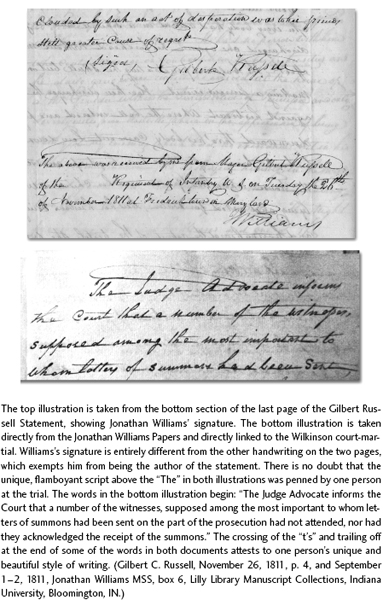 clouded by such an act of desperation was his friends
still greater Cause of regret
(Signed) Gilbert Russell
The above was received by me from Major Gilbert Russell
of the Regiment of Infantry U.S. on Tuesday the 26th
of November 1811 at Frederick town in Maryland
J Williams
The Judge Advocate informs
the Court that a number of the witnesses,
supposed among the most important to
whom letters of summons had been sent
The top illustration is taken from the bottom section of the last page of the Gilbert Rus-
sell Statement, showing Jonathan Williams’ signature. The bottom illustration is taken
directly from the Jonathan Williams Papers and directly linked to the Wilkinson court-mar-
tial. Williams’s signature is entirely different from the other handwriting on the two pages,
which exempts him from being the author of the statement. There is no doubt that the
unique, flamboyant script above the “The” in both illustrations was penned by one person
at the trial. The words in the bottom illustration begin: “The Judge Advocate informs the
Court that a number of the witnesses, supposed among the most important to whom let-
ters of summons had been sent on the part of the prosecution had not attended, nor had
they acknowledged the receipt of the summons.” The crossing of the “t’s” and trailing off
at the end of some of the words in both documents attests to one person’s unique and
beautiful style of writing. (Gilbert C. Russell, November 26, 1811, p. 4, and September
1–2, 1811, Jonathan Williams MSS, box 6, Lilly Library Manuscript Collections, Indiana
University, Bloomington, IN.)